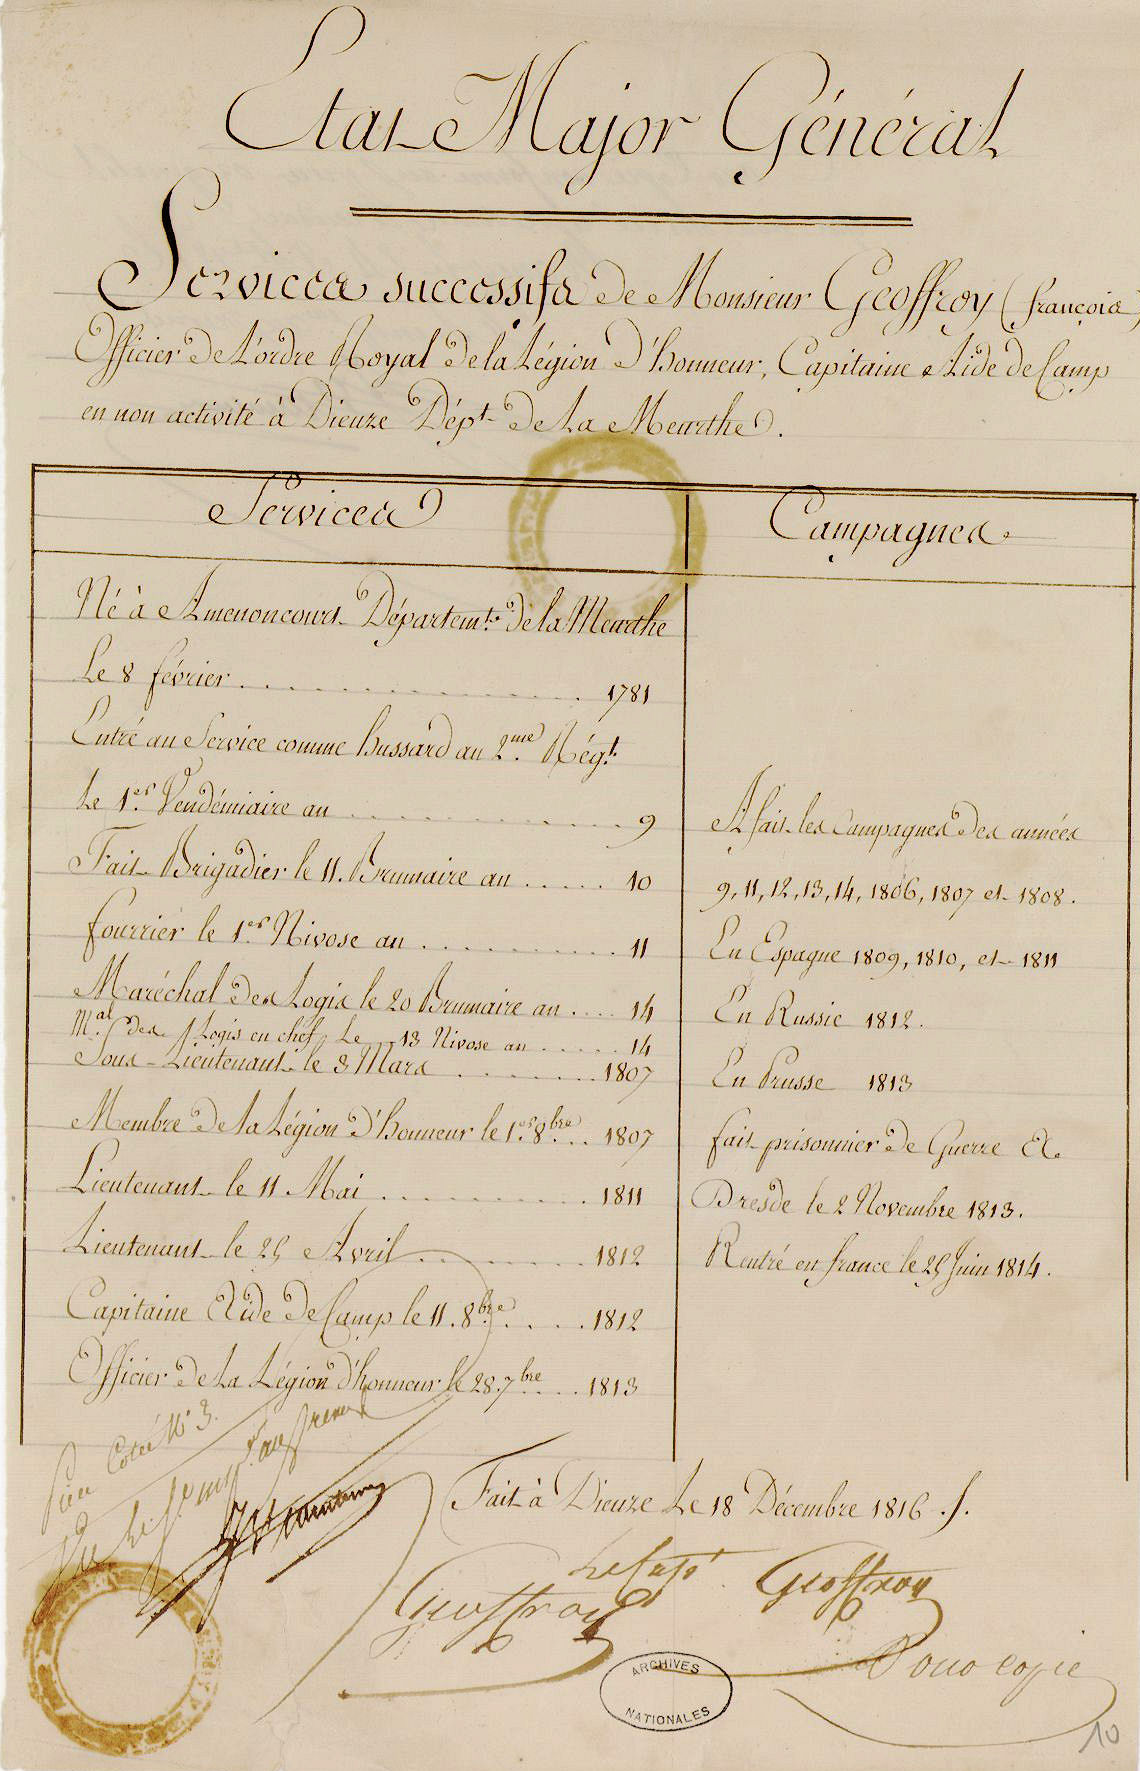 Etat Major Général
Services successifs de Monsieur Geoffroy (françois)
Officier de L'ordre Royal de la Légion d'honneur, Capitaine Aide de Camp
en non activité à Dieuze Dépt de La Meurthe.
Services
Campagnes.
Né à Amenoncourt Départemt. de la Meurthe
Le 8 février . . . . . . . . . . 1781
Entré au Service comme hussard au 2.me Régt.
Le 1.er Vendémiaire an . . . . . . . . . . 9
Fait Brigadier le 11. Brumaire an . . . . . 10
fourrier le 1.er Nivose an . . . . . . . . . 11
Maréchal des Logis le 20 Brumaire an . . . . 14
M.al des Logis en chef Le 13 Nivose an . . . . . . 14
Sous-Lieutenant le 3 Mars . . . . . . . . 1807
Membre de la Légion d'honneur le 1.er 8.bre . . 1807
Lieutenant le 11 Mai . . . . . . . . . . 1811
Lieutenant le 25 Avril . . . . . . . . 1812
Capitaine Aide de Camp le 11. 8.bre . . . . . 1812
Officier de La Légion d'honneur le 28. 7.bre . . . . 1813
A fait les Campagnes des années
9, 11, 12, 13, 14, 1806, 1807 et 1808.
En Espagne 1809, 1810, et 1811
En Russie 1812.
En Prusse 1813
fait prisonnier de Guerre A.
Dresde le 2 Novembre 1813.
Rentré en france le 25 Juin 1814.
Cotée N° 3.
Fait à Dieuze Le 18 Décembre 1816 .
Geoffroy
Geoffroy
Pour copie
ARCHIVES
NATIONALES
10